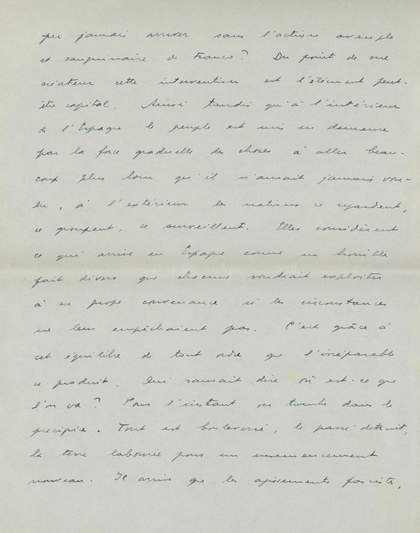 peu jamais arriver sans l'action aveugle
et sanguinaire de Franco? Du point de vue
créateur cette intervention est l'élément peut-
être capital. Ainsi tandis qu'à l'intérieur
de l'Espagne le peuple est mis en demeure
par la force graduelle de choses à aller beau-
coup plus loin qu'il n'aurait jamais vou-
lu, à l'extérieur les nations se regardent,
se groupent, se surveillent. Elles considèrent
ce qui arrive en Espagne comme un horrible
fait divers que chacune voudrait exploiter
à sa propre convenance si les circonstances
ne leur empêchaient pas. C'est grâce à
cet équilibre de tout ordre que l'irréparable
se produit. Qui saurait dire où est-ce que
l'on va? Pour l'instant on tombe dans le
précipice. Tout est bouleversé, le passé détruit,
la terre labourée pour un ensemencement
nouveau. Il arrive que les